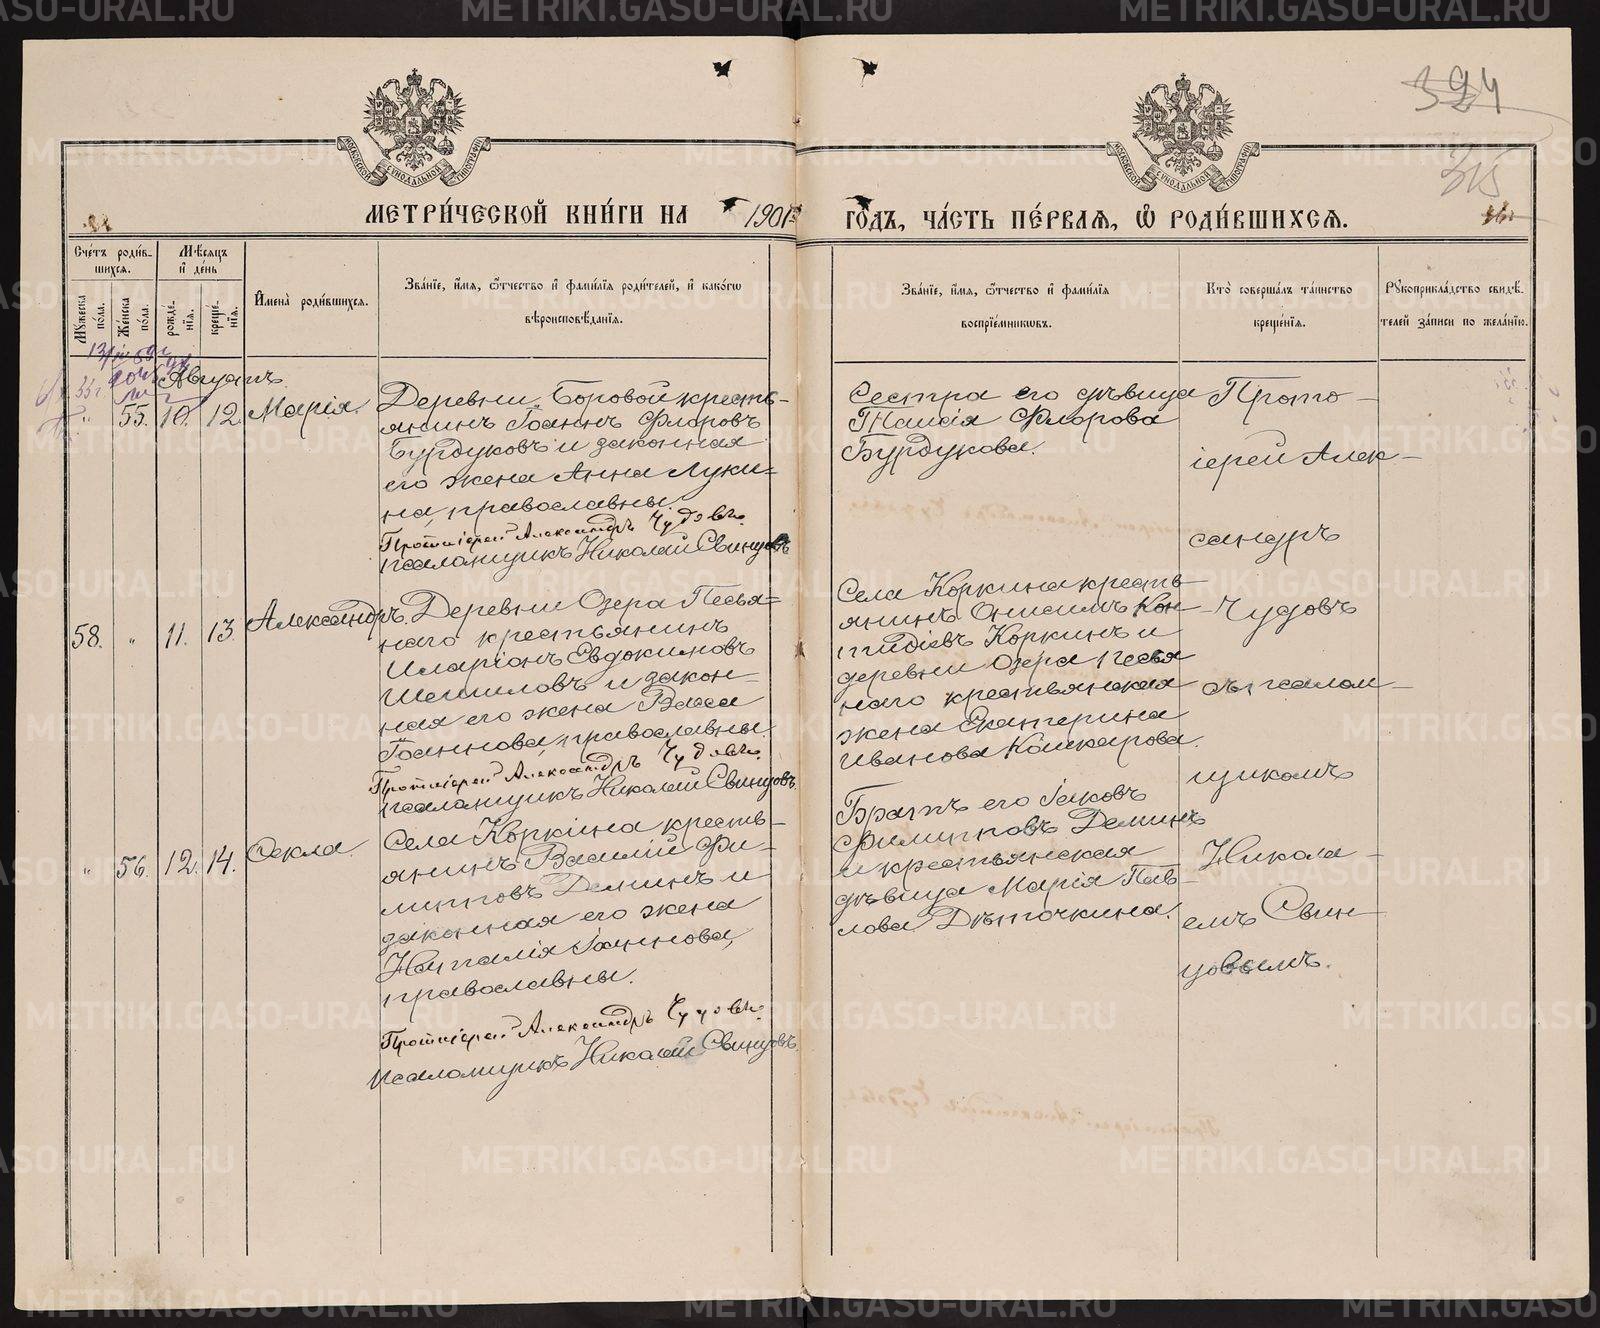 324
315
МОСКОВСКОЙ СѴНОДАЛЬНОЙ ТИПОГРАФІИ
МОСКОВСКОЙ СѴНОДАЛЬНОЙ ТИПОГРАФІИ
МЕТРИ́ЧЕСКОЙ КНИ́ГИ НА 1901
ГО́ДЪ, ЧА́СТЬ ПЕ́РВАЯ, Ѿ РОДИ́ВШИХСЯ.
Сче́тъ роди́в-
шихся.
Мѣ́сяцъ
и де́нь
Мꙋ́жеска по́ла.
Же́нска по́ла.
рожде́-
нїя.
креще́-
нїя.
Имена̀ роди́вшихся.
Зва́нїе, и́мя, ѿ́тчество и фами́лїя роди́телей, и како́гѡ
вѣроисповѣ́данїя.
Зва́нїе, и́мя, ѿ́тчество и фами́лїя
воспрїе́мниковъ.
Кто̀ соверша́лъ та́инство
креще́нїя.
Рꙋкоприкла́дство свидѣ́-
телей за́писи по жела́нїю.
Августъ.
" 55. 10. 12. Марія.
Деревни Боровой кресть-
янинъ Іоаннъ Флоровъ
Бурдуковъ и законная
его жена Анна Луки-
на, православны.
Протоіерей Александръ Чудовъ.
Псаломщикъ Николай Свинцовъ
Сестра его дѣвица
Таисія Флорова
Бурдукова.
58. " 11. 13. Александръ.
Деревни Озера Песья-
наго крестьянинъ
Иларіонъ Евдокимовъ
Шепиловъ и закон-
ная его жена Васса
Іоаннова, православны.
Протоіерей Александръ Чудовъ.
Псаломщикъ Николай Свинцовъ.
Села Коркина кресть-
янинъ Онисимъ Кон-
Коркинъ и
деревни Озера Песья
наго крестьянская
жена Екатерина
Иванова Кашкарова.
" 56. 12. 14. Ѳекла.
Села Коркина кресть-
янинъ Василій Фи-
липповъ Деминъ и
законная его жена
Наталія Іоаннова,
православны.
Протоіерей Александръ Чудовъ.
Псаломщикъ Николай Свинцовъ.
Братъ его Іаковъ
Филипповъ Деминъ
и крестьянская
дѣвица Марія Пав-
лова Дѣточкина.
Прото-
іерей Алек-
сандръ
Чудовъ
съ псалом-
щикомъ
Никола-
емъ Свин-
цовымъ.
METRIKI.GASO-URAL.RU